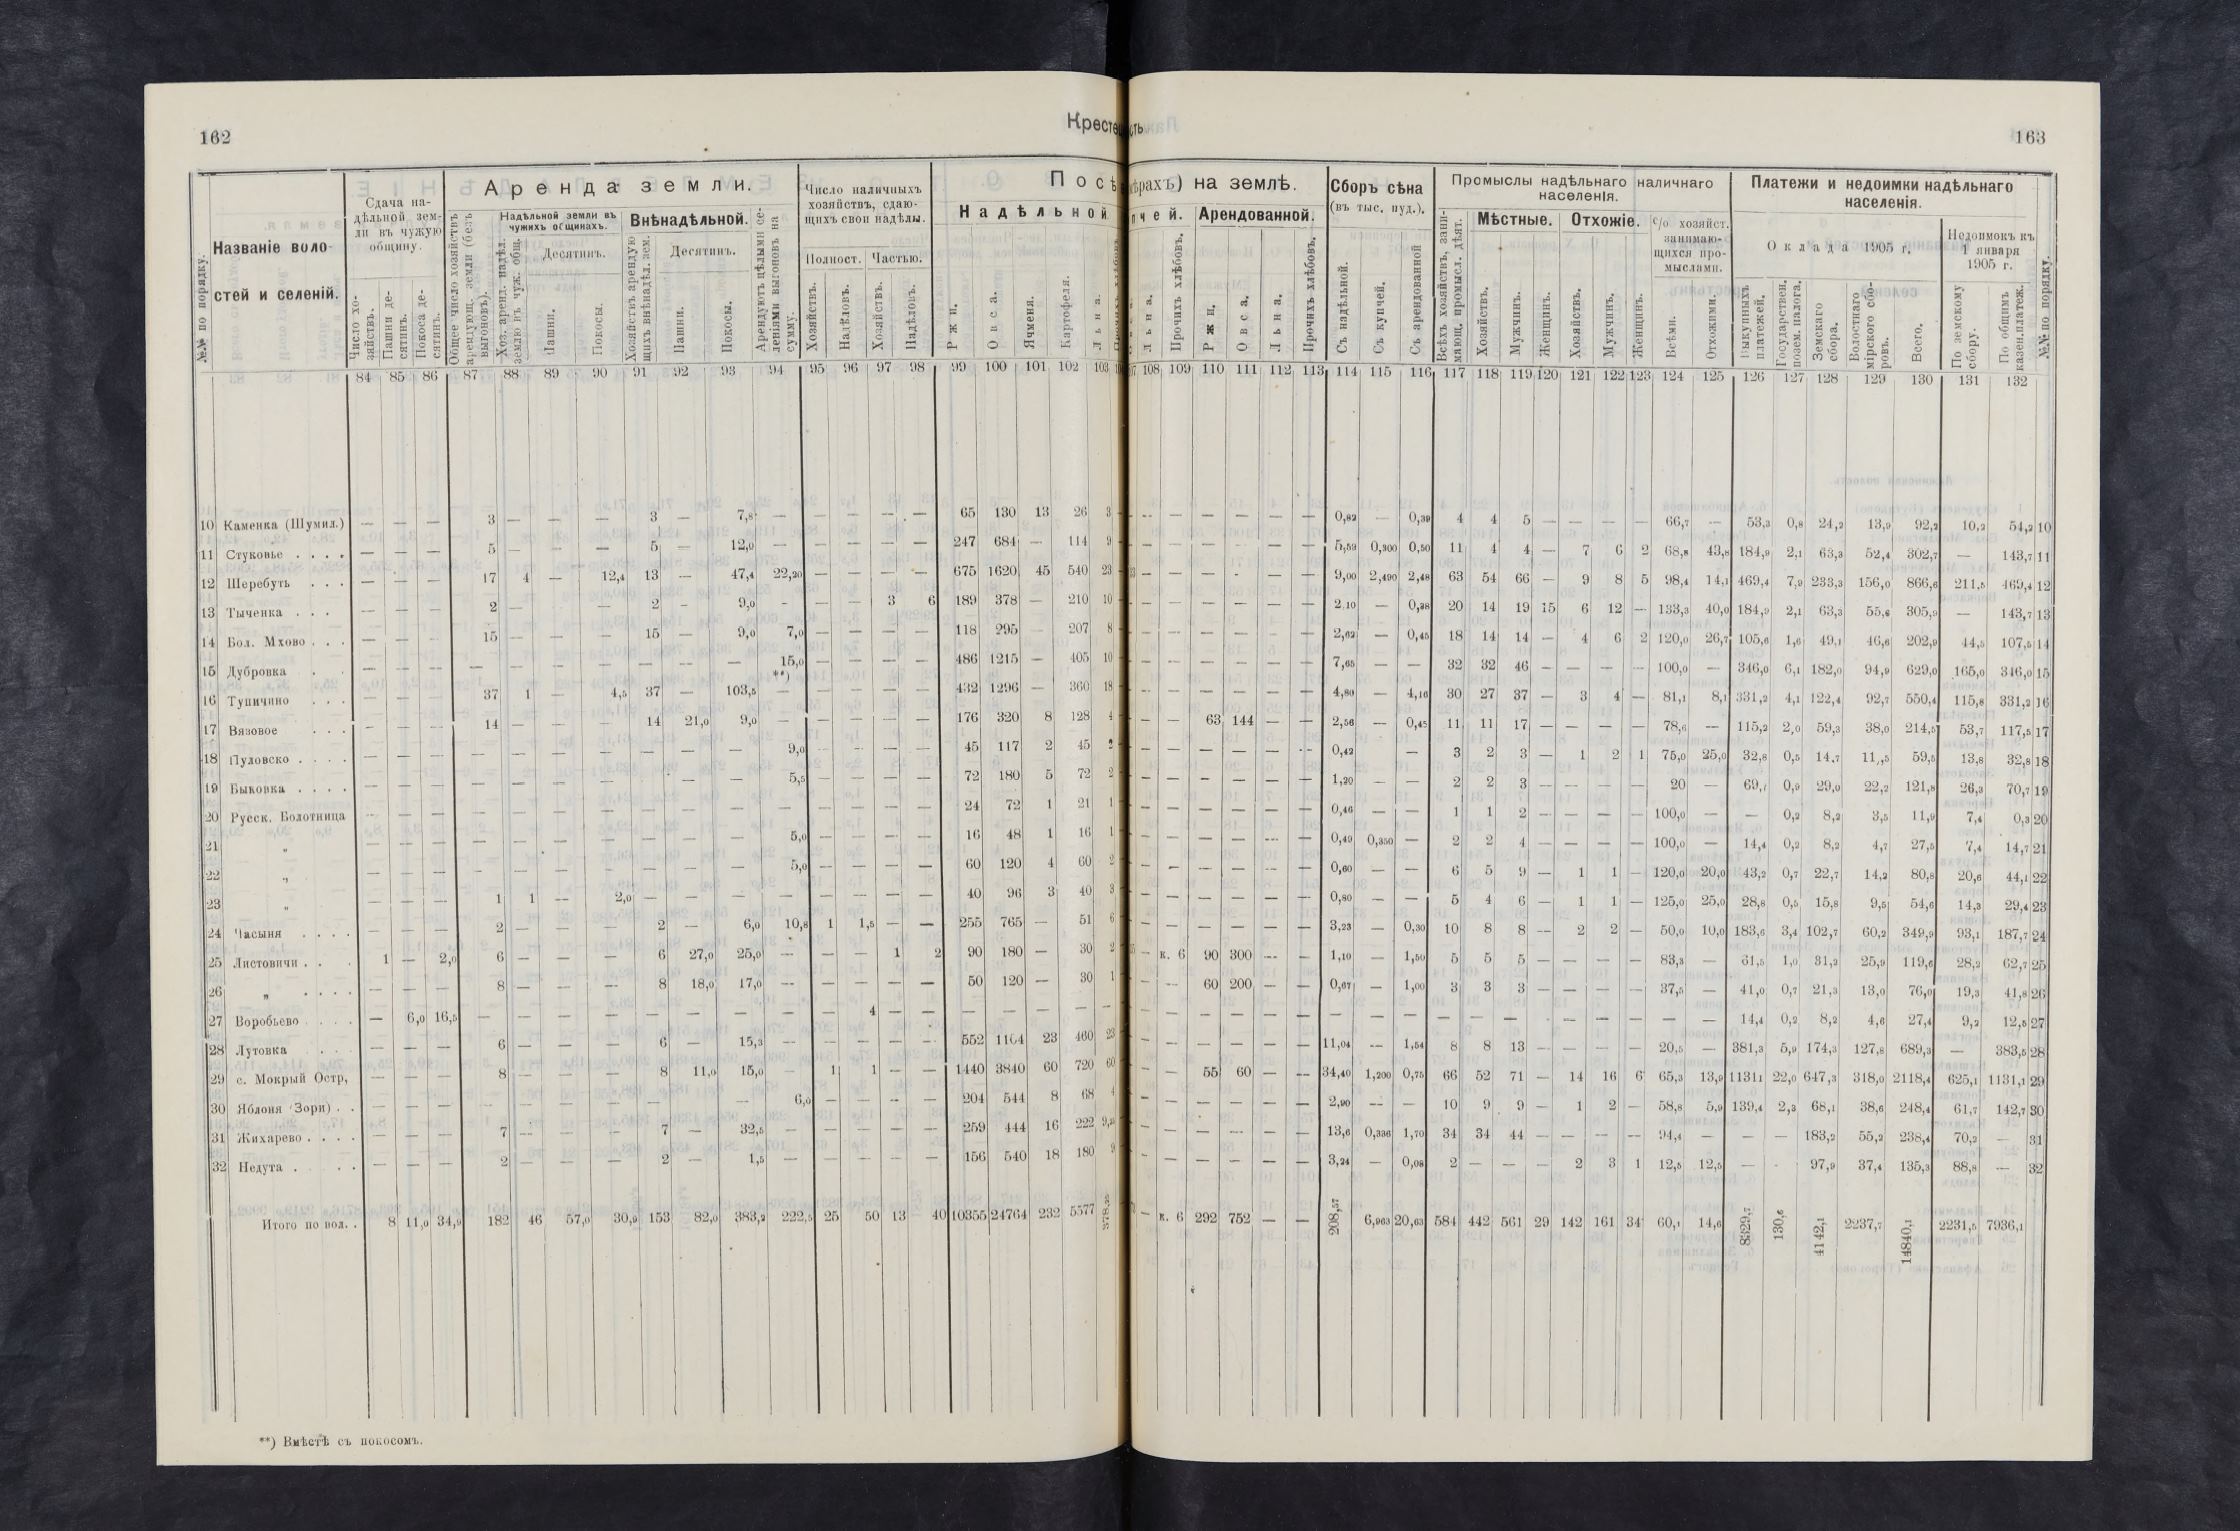 162
Кресте
сть
163
№№ по порядку.
Названіе воло-
стей и селеній.
Сдача на-
дѣльной зем-
ли въ чужую
общину.
Число хо-
зяйствъ.
Пашни де-
сятинъ.
Покоса де-
сятинъ.
Аренда земли.
Общее число хозяйствъ
арендующ. земли (безъ
выгоновъ).
Надѣльной земли въ
чужихъ общинахъ.
Хоз. аренд. надѣл.
землю въ чуж. общ.
Десятинъ.
Пашни.
Покосы.
Внѣнадѣльной.
Хозяйствъ арендую
щихъ внѣнадѣл. зем.
Десятинъ.
Пашни.
Покосы.
Арендуютъ цѣлыми се-
леніями выгоновъ на
сумму.
Число наличныхъ
хозяйствъ, сдаю-
щихъ свои надѣлы.
Полност. Частью.
Хозяйствъ.
Надѣловъ.
Хозяйствъ.
Надѣловъ.
Посѣ
Надѣльной
Ржи.
Овса.
Ячменя.
Картофеля.
Льна.
мѣрахъ) на землѣ.
пчей. Арендованной.
Льна.
Прочихъ хлѣбовъ.
Ржи.
Овса.
Льна.
Прочихъ хлѣбовъ.
Сборъ сѣна
(въ тыс. пуд.).
Съ надѣльной.
Съ купчей.
Съ арендованной
Промыслы надѣльнаго наличнаго
населенія.
Всѣхъ хозяйствъ, зани-
мающ. промысл. дѣят.
Мѣстные. Отхожіе.
Хозяйствъ.
Мужчинъ.
Женщинъ.
Хозяйствъ.
Мужчинъ.
Женщинъ.
% хозяйст.
занимаю-
щихся про-
мыслами.
Всѣми.
Отхожими.
Платежи и недоимки надѣльнаго
населенія.
Оклада 1905 г.
Выкупныхъ
платежей.
Государствен.
позем. налога.
Земскаго
сбора.
Волостнаго
мірского сбо-
ровъ.
Всего.
Недоимокъ къ
1 января
1905 г.
По земскому
сбору.
По общимъ
казен. платеж.
№№ по порядку.
84 85 86 87 88 89 90 91 92 93 94 95 96 97 98 99 100 101 102 103
108 109 110 111 112 113 114 115 116 117 118 119 120 121 122 123 124 125 126 127 128 129 130 131 132
10 Каменка (Шумил.) — — — 3 — — — 3 — 7,8 — — — — — 65 130 13 26 3
— — — — — — 0,82 — 0,39 4 4 5 — — — — 66,7 — 53,3 0,8 24,2 13,9 92,2 10,2 54,2 10
11 Стуковье . . . . — — — 5 — — — 5 — 12,0 — — — — — 247 684 — 114 9
— — — — — — 5,59 0,300 0,50 11 4 4 — 7 6 2 68,8 43,8 184,9 2,1 63,3 52,4 302,7 — 143,7 11
12 Шеребуть . . . — — — 17 4 — 12,4 13 — 47,4 22,20 — — — — 675 1620 45 540 23
— — — — — — 9,00 2,490 2,48 63 54 66 — 9 8 5 98,4 14,1 469,4 7,9 233,3 156,0 866,6 211,5 469,4 12
13 Тыченка . . . — — — 2 — — — 2 — 9,0 — — — 3 6 189 378 — 210 10
— — — — — — 2,10 — 0,38 20 14 19 15 6 12 — 133,3 40,0 184,9 2,1 63,3 55,6 305,9 — 143,7 13
14 Бол. Мхово . . . — — — 15 — — — 15 — 9,0 7,0 — — — — 118 295 — 207 8
— — — — — — 2,62 — 0,45 18 14 14 — 4 6 2 120,0 26,7 105,6 1,6 49,1 46,6 202,9 44,5 107,5 14
15 Дубровка . . — — — — — — — — — — 15,0 — — — — 486 1215 — 405 10
— — — — — — 7,65 — — 32 32 46 — — — — 100,0 — 346,0 6,1 182,0 94,9 629,0 165,0 346,0 15
**)
16 Тупичино . . . — — — 37 1 — 4,5 37 — 103,5 — — — — — 432 1296 — 360 18
— — — — — — 4,80 — 4,16 30 27 37 — 3 4 — 81,1 8,1 331,2 4,1 122,4 92,7 550,4 115,8 331,2 16
17 Вязовое . . . — — — 14 — — — 14 21,0 9,0 — — — — — 176 320 8 128 4
— — 63 144 — — 2,56 — 0,45 11 11 17 — — — — 78,6 — 115,2 2,0 59,3 38,0 214,5 53,7 117,5 17
18 Пуловско . . . . — — — — — — — — — — 9,0 — — — — 45 117 2 45 2
— — — — — — 0,42 — 3 2 3 — 1 2 1 75,0 25,0 32,8 0,5 14,7 11,5 59,5 13,8 32,8 18
19 Быковка . . . . — — — — — — — — — — 5,5 — — — — 72 180 5 72 2
— — — — — — 1,20 — — 2 2 3 — — — — 20 — 69,1 0,9 29,0 22,2 121,8 26,3 70,7 19
20 Русск. Болотница — — — — — — — — — — — — — — — 24 72 1 21 1
— — — — — — 0,46 — — 1 1 2 — — — — 100,0 — — 0,2 8,2 3,5 11,9 7,4 0,3 20
21 „ — — — — — — — — — — 5,0 — — — — 16 48 1 16 1
— — — — — — 0,49 0,350 — 2 2 4 — — — — 100,0 — 14,4 0,2 8,2 4,7 27,5 7,4 14,7 21
22 „ — — — — — — — — — — 5,0 — — — — 60 120 4 60 2
— — — — — — 0,60 — — 6 5 9 — 1 1 — 120,0 20,0 43,2 0,7 22,7 14,2 80,8 20,6 44,1 22
23 „ — — — 1 1 — 2,0 — — — — — — — — 40 96 3 40 3
— — — — — — 0,80 — — 5 4 6 — 1 1 — 125,0 25,0 28,8 0,5 15,8 9,5 54,6 14,3 29,4 23
24 Часыня . . . . — — — 2 — — — 2 — 6,0 10,8 1 1,5 — — 255 765 — 51 6
— — — — — — 3,23 — 0,30 10 8 8 — 2 2 — 50,0 10,0 183,6 3,4 102,7 60,2 349,9 93,1 187,7 24
25 Листовичи . . . 1 — 2,0 6 — — — 6 27,0 25,0 — — — 1 2 90 180 — 30 2
— к. 6 90 300 — — 1,10 — 1,50 5 5 5 — — — — 83,3 — 61,5 1,0 31,2 25,9 119,6 28,2 62,7 25
26 „ . . . . — — — 8 — — — 8 18,0 17,0 — — — — — 50 120 — 30 1
— — 60 200 — — 0,67 — 1,00 3 3 3 — — — — 37,5 — 41,0 0,7 21,3 13,0 76,0 19,3 41,8 26
27 Воробьево . . . . — 6,0 16,5 — — — — — — — — — — 4 — — — — — —
— — — — — — — — — — — — — — — — — — 14,4 0,2 8,2 4,6 27,4 9,2 12,5 27
28 Лутовка . . . — — — 6 — — — 6 — 15,3 — — — — — 552 1104 23 460 23
— — — — — — 11,04 — 1,54 8 8 13 — — — — 20,5 — 381,3 5,9 174,3 127,8 689,3 — 383,5 28
29 с. Мокрый Остр, — — — 8 — — — 8 11,0 15,0 — 1 1 — — 1440 3840 60 720 60
— — 55 60 — — 34,40 1,200 0,75 66 52 71 — 14 16 6 65,3 13,9 11311 22,0 647,3 318,0 2118,4 625,1 1131,1 29
30 Яблоня (Зори) . . — — — — — — — — — — 6,0 — — — — 204 544 8 68 4
— — — — — — 2,90 — — 10 9 9 — 1 2 — 58,8 5,9 139,4 2,3 68,1 38,6 248,4 61,7 142,7 30
31 Жихарево . . . . — — — 7 — — — 7 — 32,5 — — — — — 259 444 16 222
— — — — — — 13,6 0,336 1,70 34 34 44 — — — — 94,4 — — — 183,2 55,2 238,4 70,2 — 31
32 Недута . . . . — — — 2 — — — 2 — 1,5 — — — — — 156 540 18 180 9
— — — — — — 3,24 — 0,08 2 — — — 2 3 1 12,5 12,5 — - 97,9 37,4 135,3 88,8 — 32
Итого по вол. . 8 11,0 34,9 182 46 57,0 30,9 153 82,0 383,2 222,5 25 50 13 40 10355 24764 232 5577
— к. 6 292 752 — — 208,57 6,963 20,63 584 442 561 29 142 161 34 60,1 14,6 8329,7 130,6 4142,1 2237,7 14840,1 2231,5 7936,1
**) Вмѣстѣ съ покосомъ.